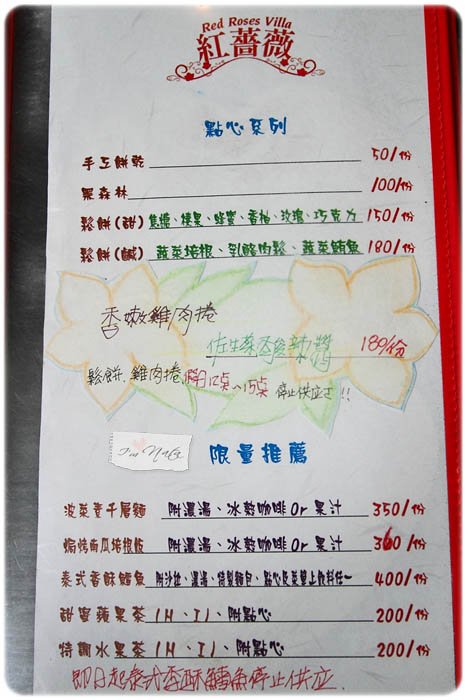 Red Roses Villa
紅薔薇
點心系列
手工餅乾 50/份
黑森林 100/份
鬆餅(甜) 焦糖、楓果、蜂蜜、香柚、玫瑰、巧克力 150/份
鬆餅(鹹) 蔬菜培根、乳酪肉鬆、蔬菜鮪魚 180/份
香嫩雞肉捲
佐生菜 辣醬 180/份
鬆餅.雞肉捲 假日12点~15点 停止供应!!
I'm
限量推薦
波菜壹千層麵 附濃湯、冰熱咖啡Or果汁 350/份
焗烤南瓜培根飯 附濃湯、冰熱咖啡Or果汁 360/份
泰式香酥鱈魚 附沙拉、濃湯、特製麵包、點心及菜單上飲料任一 400/份
甜蜜蘋果茶(H、I)、附點心 200/份
特調水果茶(H、I)、附點心 200/份
即日起泰式香酥鱈魚停止供应.